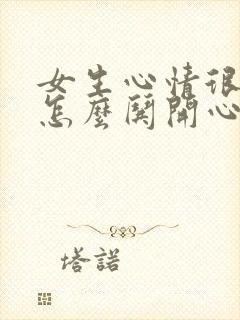 女生心情很
怎麼鬨開心
塔諾